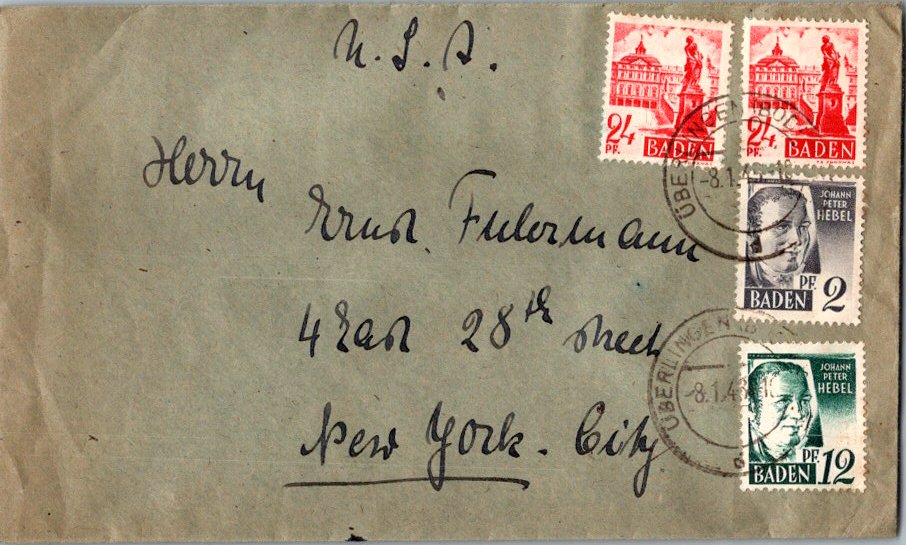 U. S. A.
Herrn
Ernst
4 East 28th street
New York. City
24
PF.
BADEN
24
PF.
BADEN
JOHANN
PETER
HEBEL
PF. 2
BADEN
JOHANN
PETER
HEBEL
PF. 12
BADEN
ÜBERLINGEN (BOD
-8.1.4
ÜBERLINGEN
-8.1.48